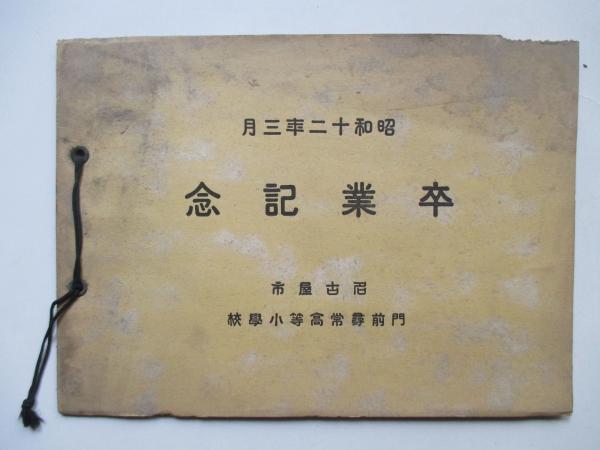 昭和十二年三月
卒業記念
名古屋市
門前尋常高等小學校